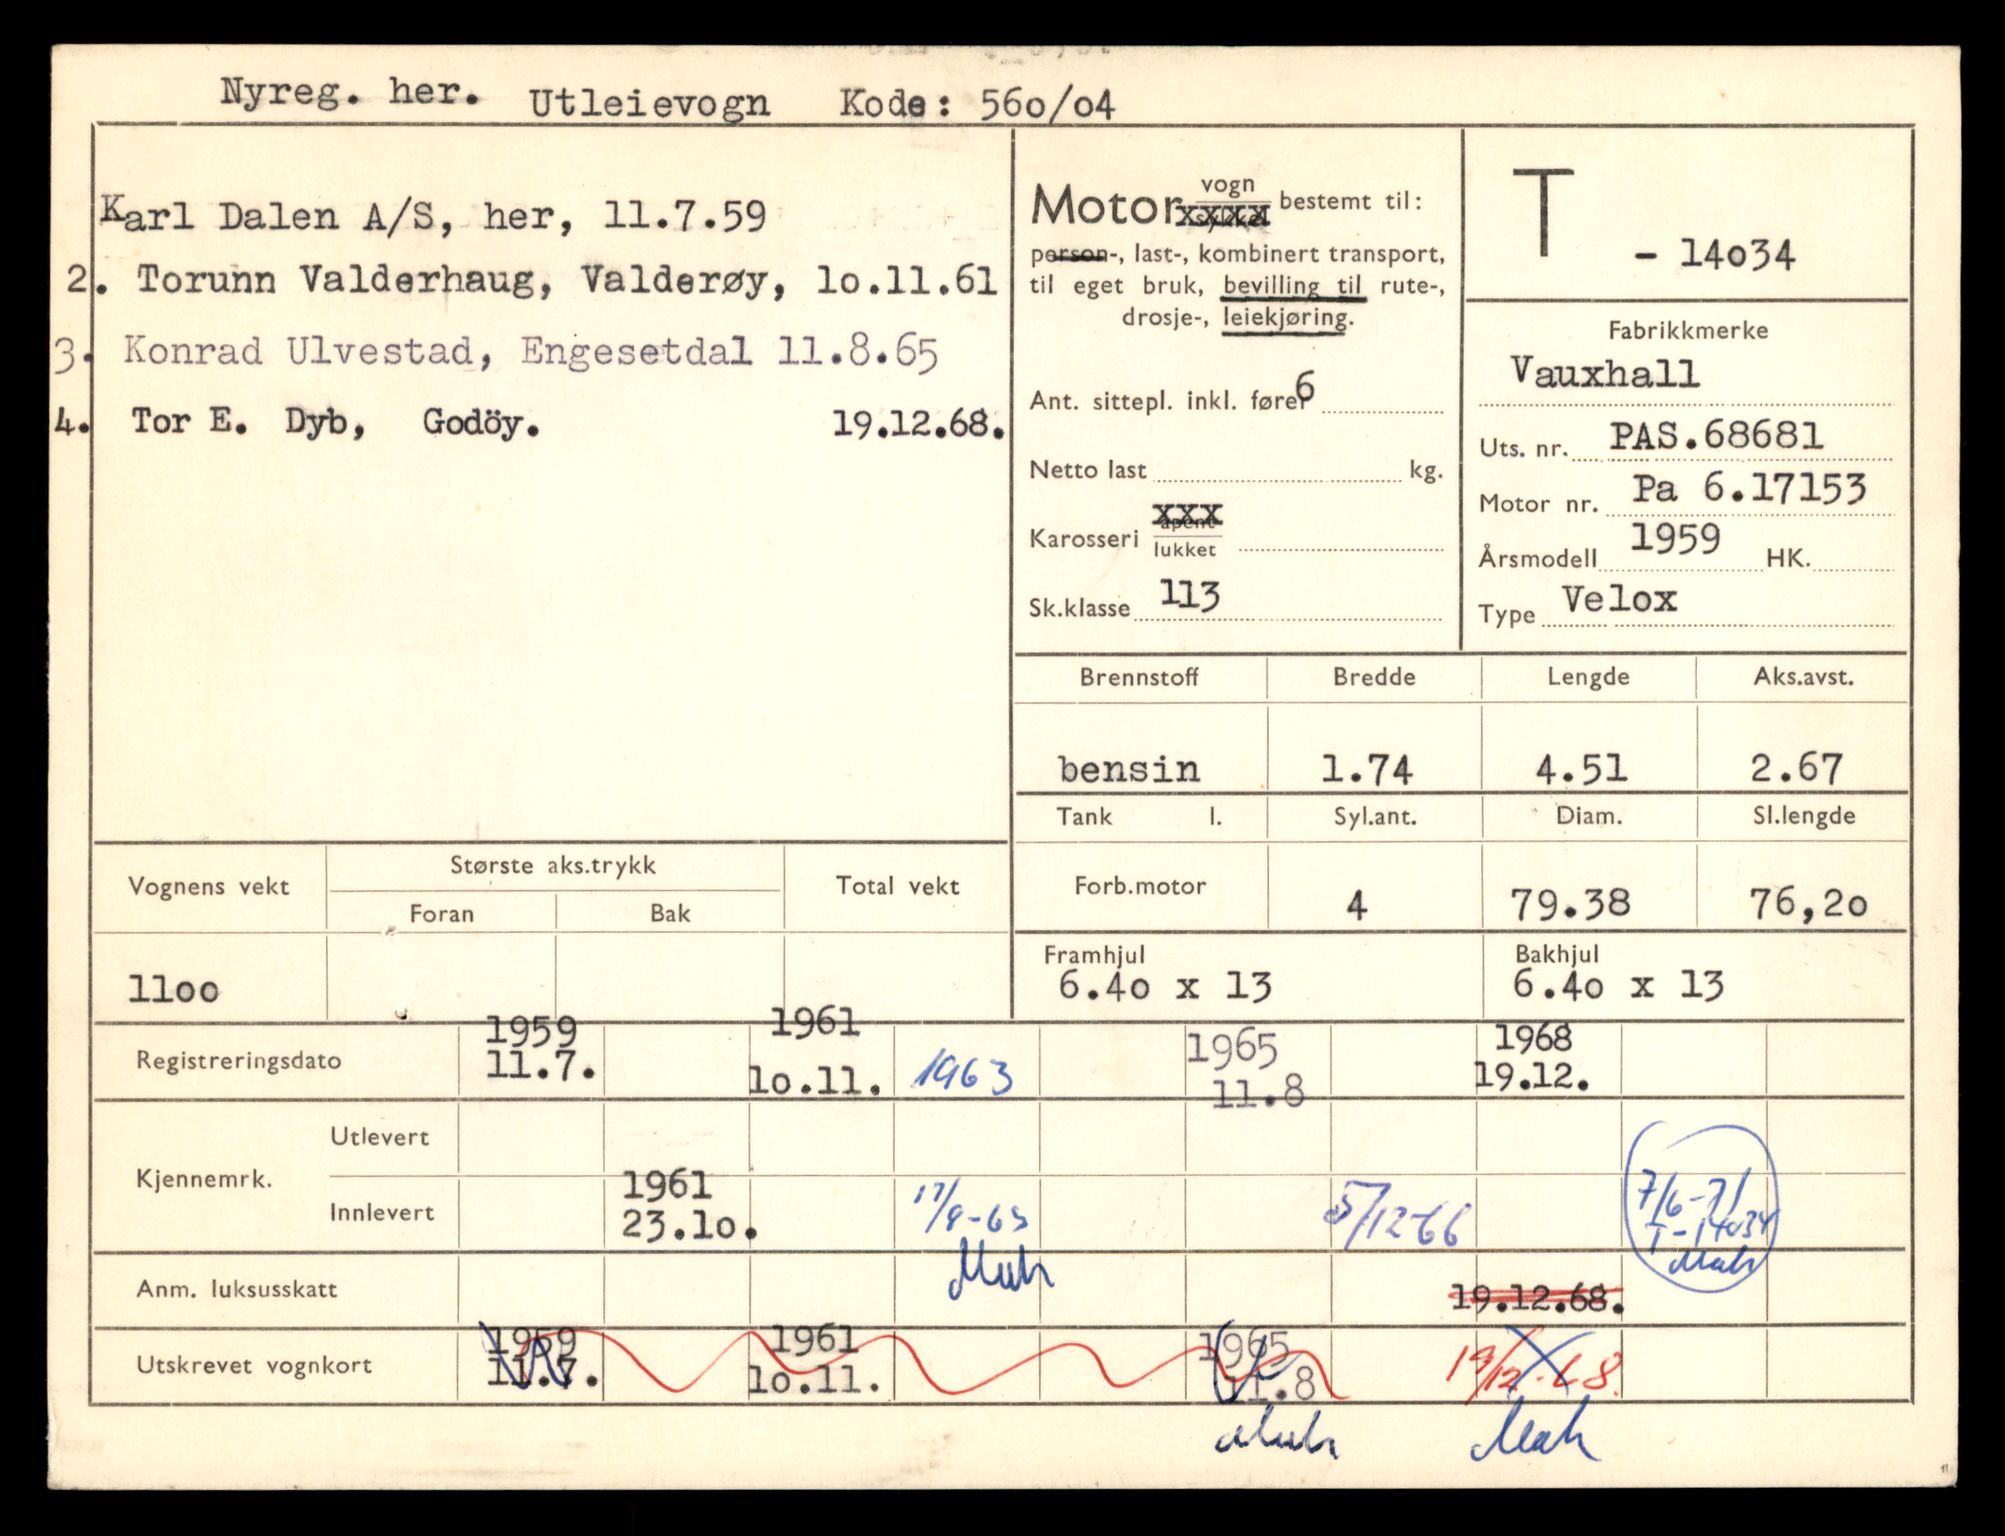 Nyreg. her. Utleievogn Kode: 56o/o4
Karl Dalen A/S, her, 11.7.59
2. Torunn Valderhaug, Valderøy, lo.11.61
3. Konrad Ulvestad, Engesetdal 11.8.65
4. Tor E. Dyb, Godöy. 19.12.68.
Motor vogn bestemt til:
xxxx
person-, last-, kombinert transport,
til eget bruk, bevilling til rute-,
drosje-, leiekjøring.
Ant. sittepl. inkl. fører 6
Netto last kg.
xxx
Karosseri åpent
lukket
Sk.klasse 113
T - 14o34
Fabrikkmerke
Vauxhall
Uts. nr. PAS.68681
Motor nr. Pa 6.17153
Årsmodell 1959 HK.
Type Velox
Brennstoff Bredde Lengde Aks.avst.
bensin 1.74 4.51 2.67
Tank l. Syl.ant. Diam. Sl.lengde
Forb.motor 4 79.38 76,2o
Framhjul Bakhjul
6.4o x 13 6.4o x 13
Vognens vekt Største aks.trykk Total vekt
Foran Bak
11oo
1959 1961 1965 1968
Registreringsdato 11.7. lo.11. 1963 11.8 19.12.
Utlevert
Kjennemrk.
1961
Innlevert 23.lo. 5/12-66 7/6-71
T-14034
Anm. luksusskatt 19.12.68.
1959 1961 1965
Utskrevet vognkort 11.7. lo.11. 11.8 19/12-68.